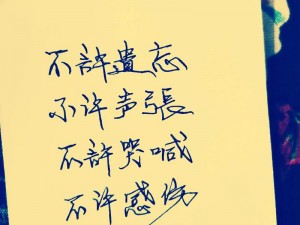 不許遺忘
不许声張
不許哭喊
不许感伤